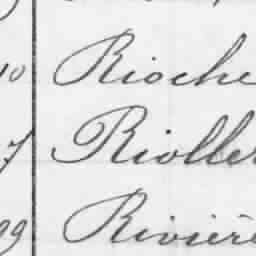 10 Rioche
7 Rioller
99 Rivière